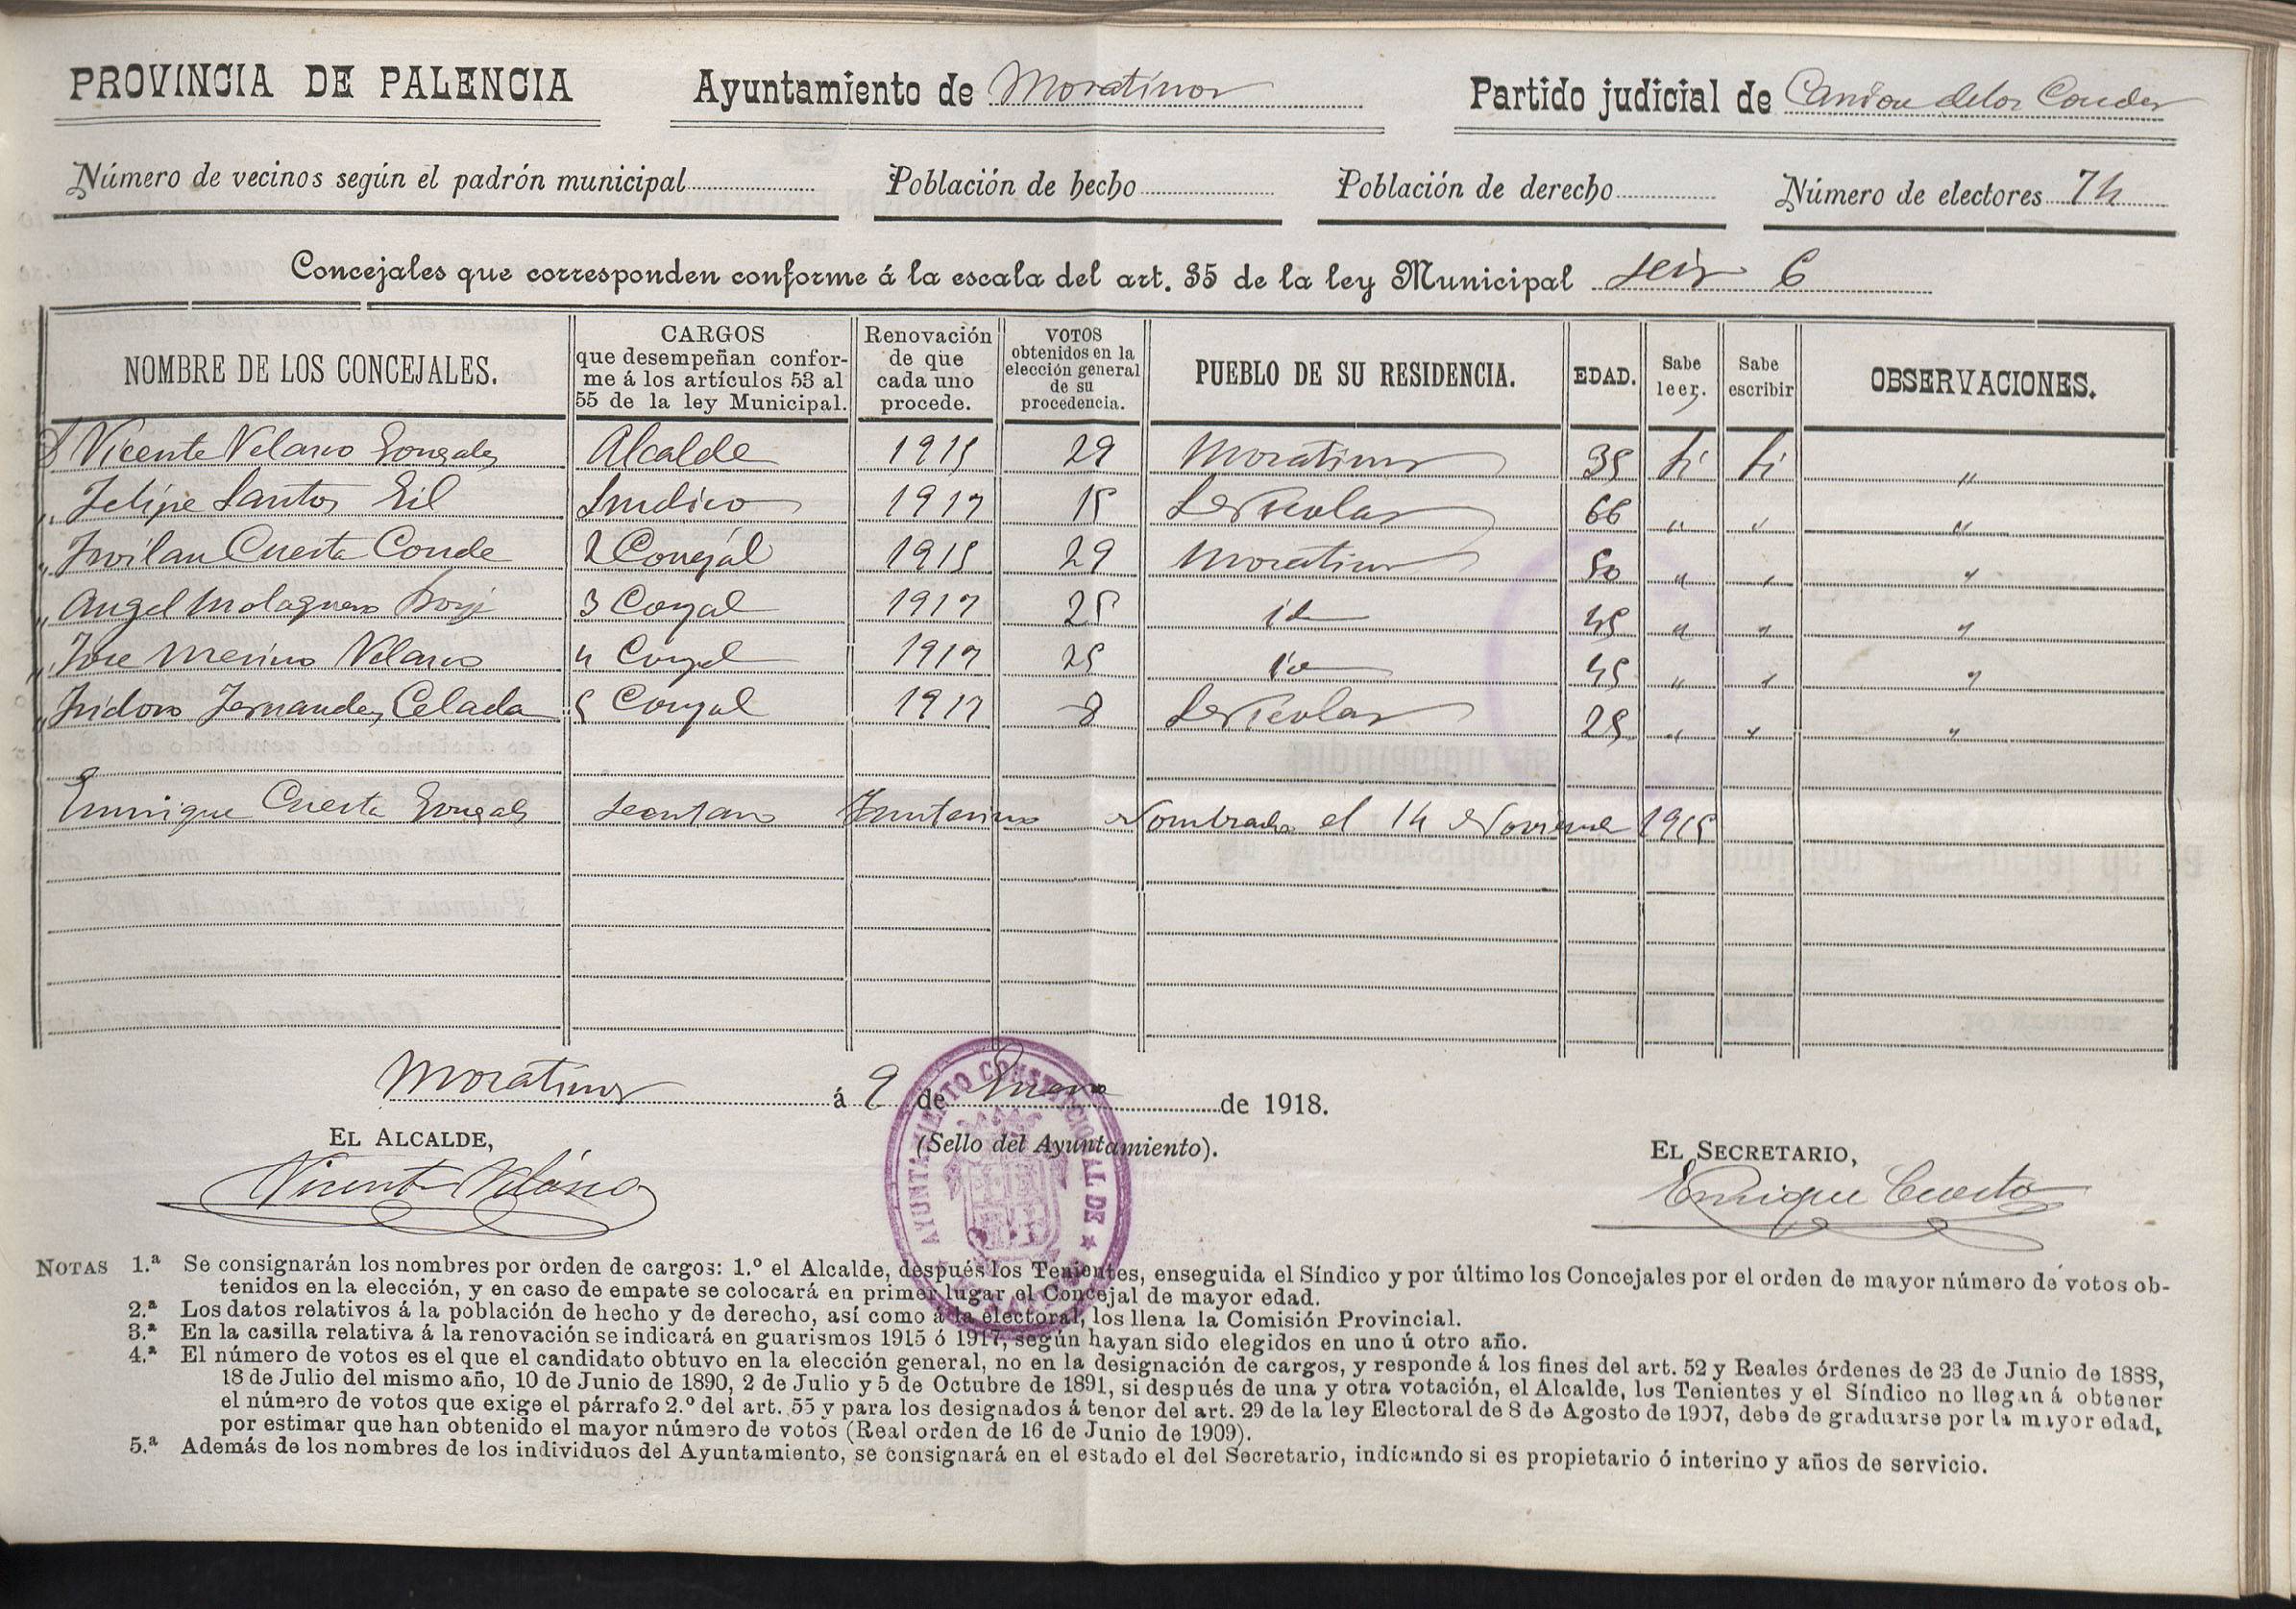 PROVINCIA DE PALENCIA Ayuntamiento de Moratinos Partido judicial de Carrion de los Condes
Número de vecinos según el padrón municipal Población de hecho Población de derecho Número de electores 74
Concejales que corresponden conforme á la escala del art. 35 de la ley Municipal seis 6
NOMBRE DE LOS CONCEJALES. CARGOS que desempeñan conforme á los artículos 53 al 55 de la ley Municipal. Renovación de que cada uno procede. VOTOS obtenidos en la elección general de su procedencia. PUEBLO DE SU RESIDENCIA. EDAD. Sabe leer. Sabe escribir OBSERVACIONES.
Vicente Velasco Gonzalez Alcalde 1915 29 Moratinos 35 Si Si "
" Felipe Santos Gil Sindico 1917 15 66 " " "
" Froilan Cuesta Conde 2 Concejal 1915 29 Moratinos 50 " " "
" Angel Molaguero Borje 3 Conzal 1917 25 id 45 " " "
" Jose Merino Velasco 4 Conzal 1917 25 id 45 " " "
" Isidoro Fernandez Celada 5 Conzal 1917 8 25 " " "
Enrrique Cuesta Gonzalez Secretario Ynterino Nombrado el 14 1915
Moratinos á 9 de Enero de 1918.
EL ALCALDE, (Sello del Ayuntamiento). EL SECRETARIO,
Vicente Velasco Enrique Cuesta
AYUNTAMIENTO CONSTITUCIONAL DE
NOTAS 1.ª Se consignarán los nombres por orden de cargos: 1.º el Alcalde, después los Tenientes, enseguida el Síndico y por último los Concejales por el orden de mayor número de votos ob-
tenidos en la elección, y en caso de empate se colocará en primer lugar el Concejal de mayor edad.
2.ª Los datos relativos á la población de hecho y de derecho, así como á la electoral, los llena la Comisión Provincial.
3.ª En la casilla relativa á la renovación se indicará en guarismos 1915 ó 1917, según hayan sido elegidos en uno ú otro año.
4.ª El número de votos es el que el candidato obtuvo en la elección general, no en la designación de cargos, y responde á los fines del art. 52 y Reales órdenes de 23 de Junio de 1888,
18 de Julio del mismo año, 10 de Junio de 1890, 2 de Julio y 5 de Octubre de 1891, si después de una y otra votación, el Alcalde, los Tenientes y el Síndico no llegan á obtener
el número de votos que exige el párrafo 2.º del art. 55 y para los designados á tenor del art. 29 de la ley Electoral de 8 de Agosto de 1907, debe de graduarse por la mayor edad,
por estimar que han obtenido el mayor número de votos (Real orden de 16 de Junio de 1909).
5.ª Además de los nombres de los individuos del Ayuntamiento, se consignará en el estado el del Secretario, indicando si es propietario ó interino y años de servicio.